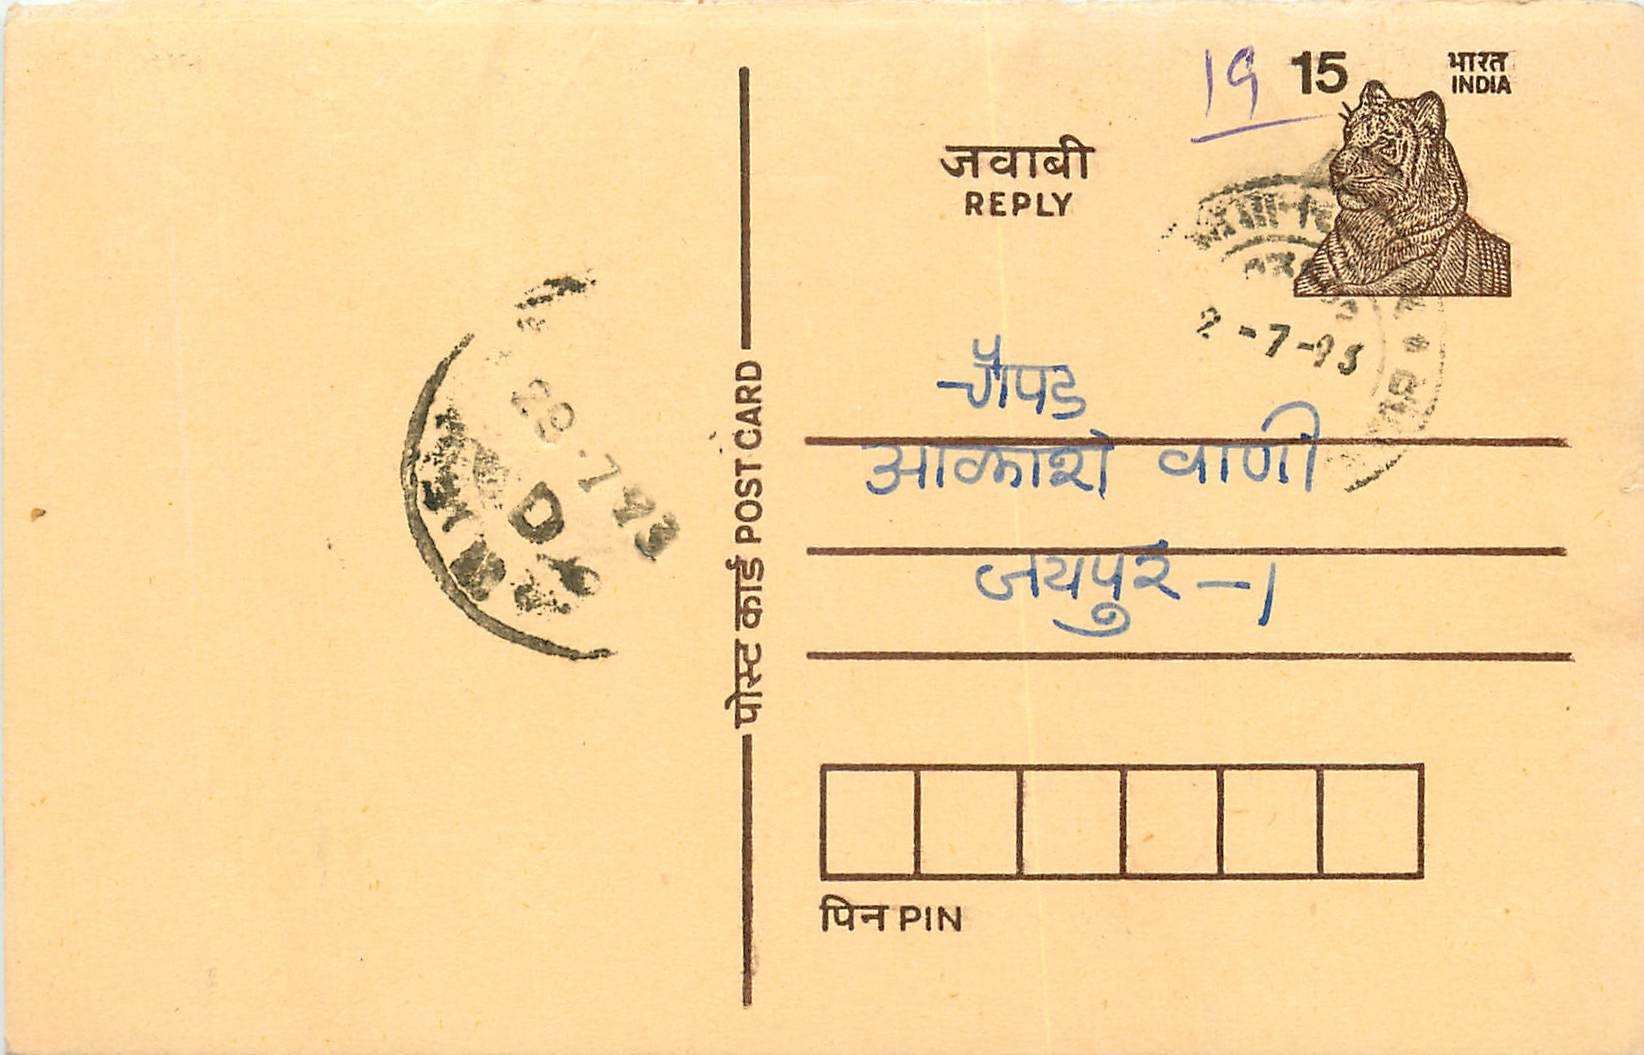 19
15
भारत
INDIA
जवाबी
REPLY
2-7-95
चौपड
आकाशे वाणी
जयपुर-1
पोस्ट कार्ड POST CARD
D
पिन PIN